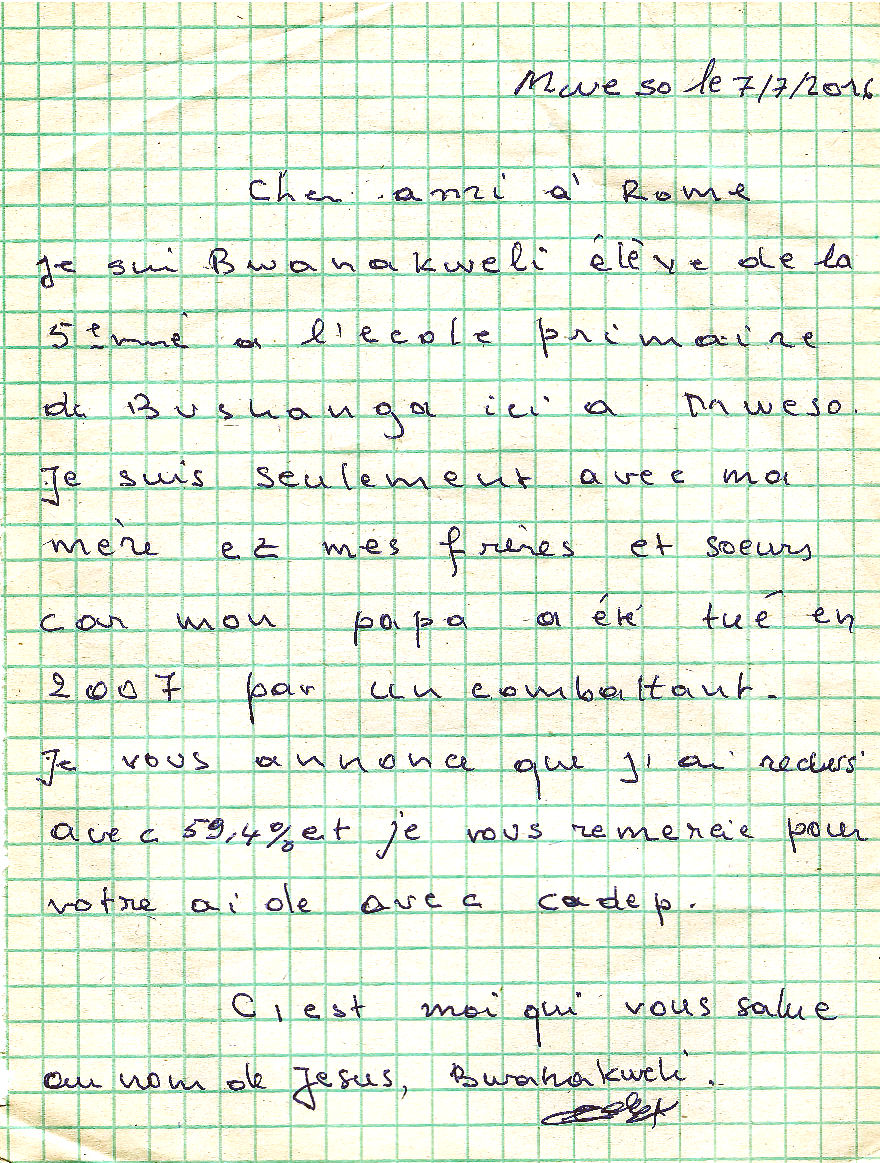 Mweso le 7/7/2016
Cher ami à Rome
Je sui Bwanakweli élève de la
5emé a l'ecole primaire
de Bushanga ici a Mweso.
Je suis seulement avec ma
mère et mes frères et soeurs
car mon papa a été tué en
2007 par un combattant.
Je vous annonce que j'ai
avec 59,4% et je vous remercie pour
votre aide avec cadep.
C'est moi qui vous salue
au nom de Jesus, Bwanakweli.